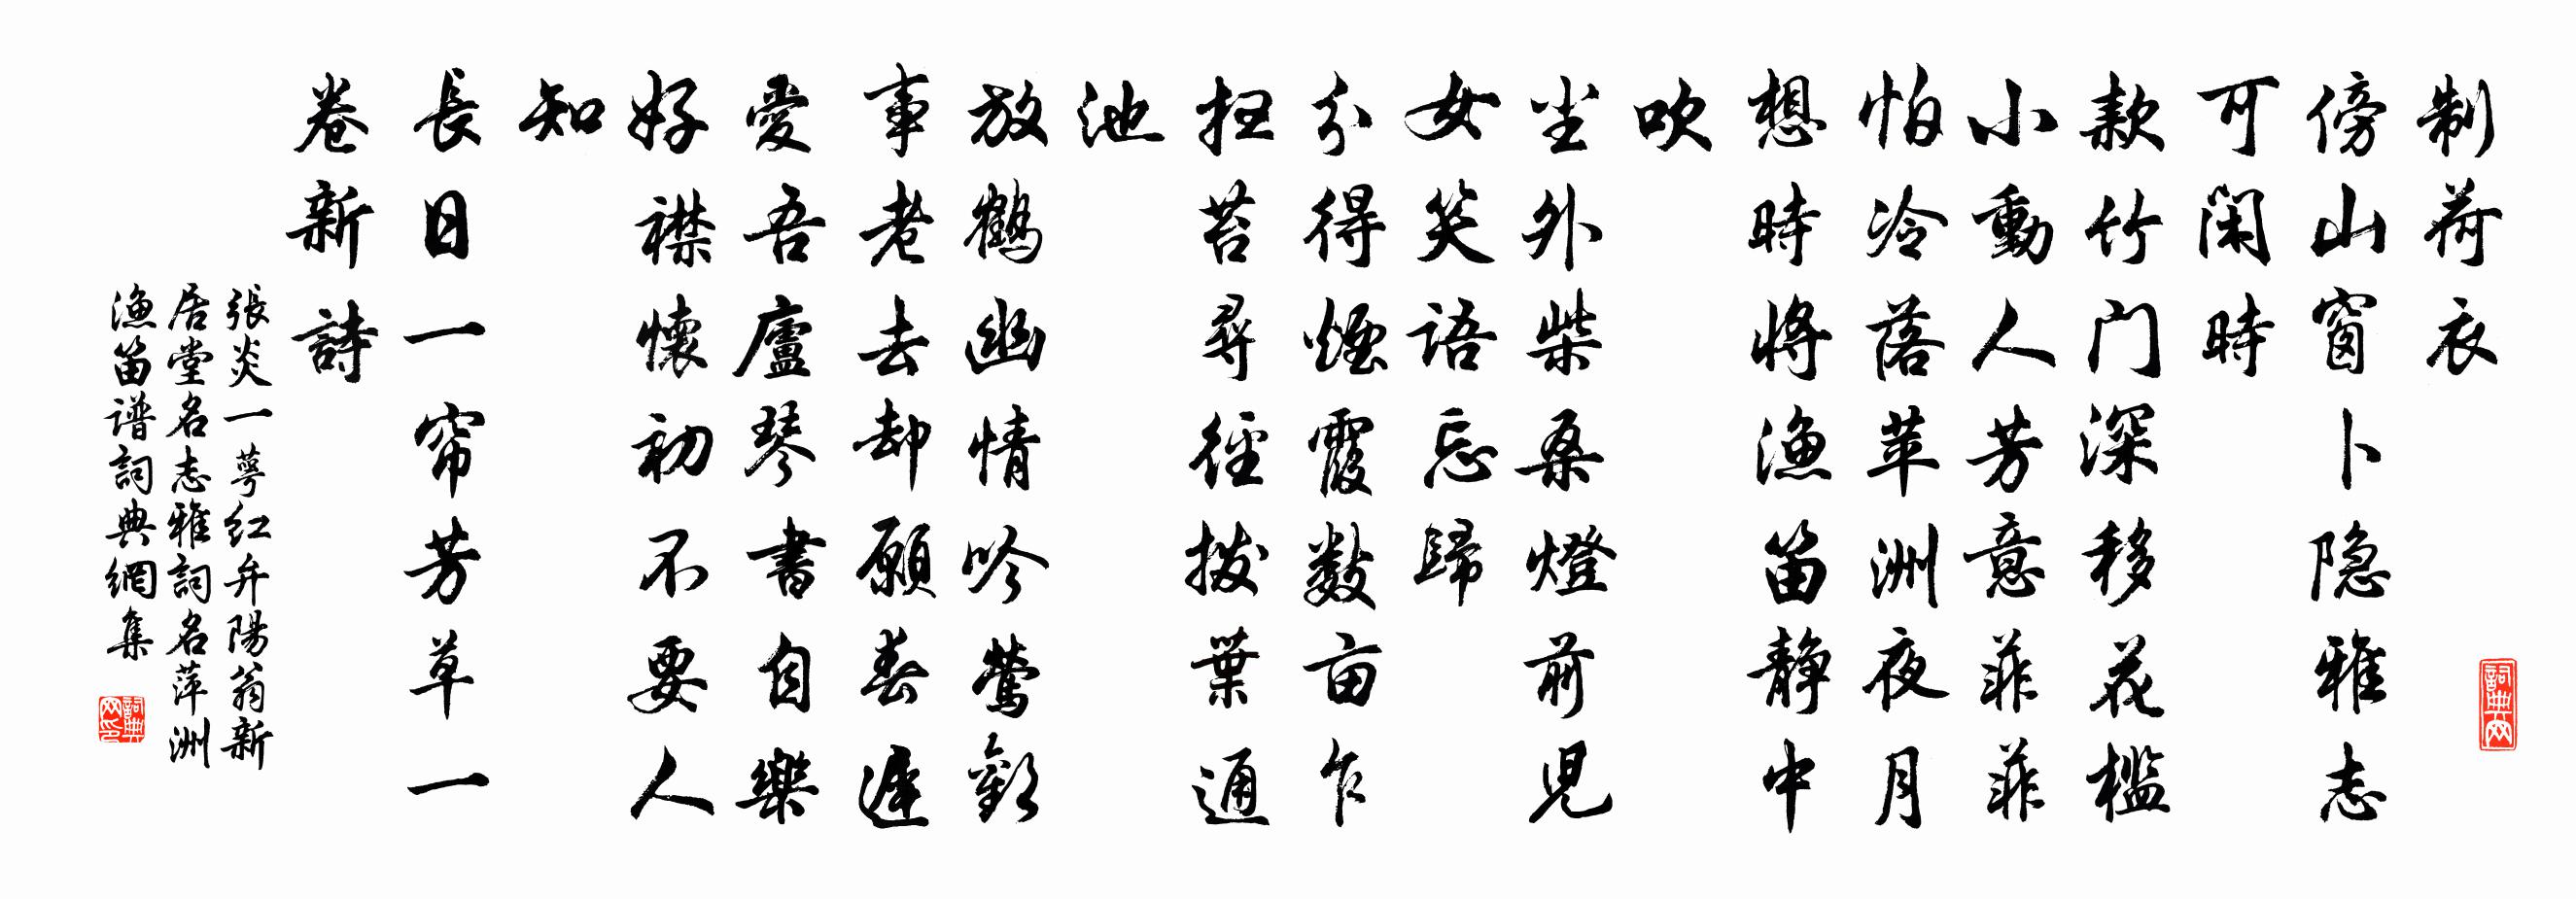 制荷衣
傍山窗卜隐雅志
可閑時
款竹门深移花檻
小動人芳意菲菲
怕冷落苹洲夜月
想時將漁笛静中
吹
尘外柴桑燈前児
女笑語忘歸
分得煙霞数亩乍
扫苔尋徑撥葉通
池
放鶴幽情吟鶯歡
事老去却願春遲
愛吾廬琴書自樂
好襟懷初不要人
知
長日一帘芳草一
卷新詩
張炎一萼红弁陽翁新
居堂名志雅詞名萍洲
漁笛谱詞典網集
詞典网
詞典网印